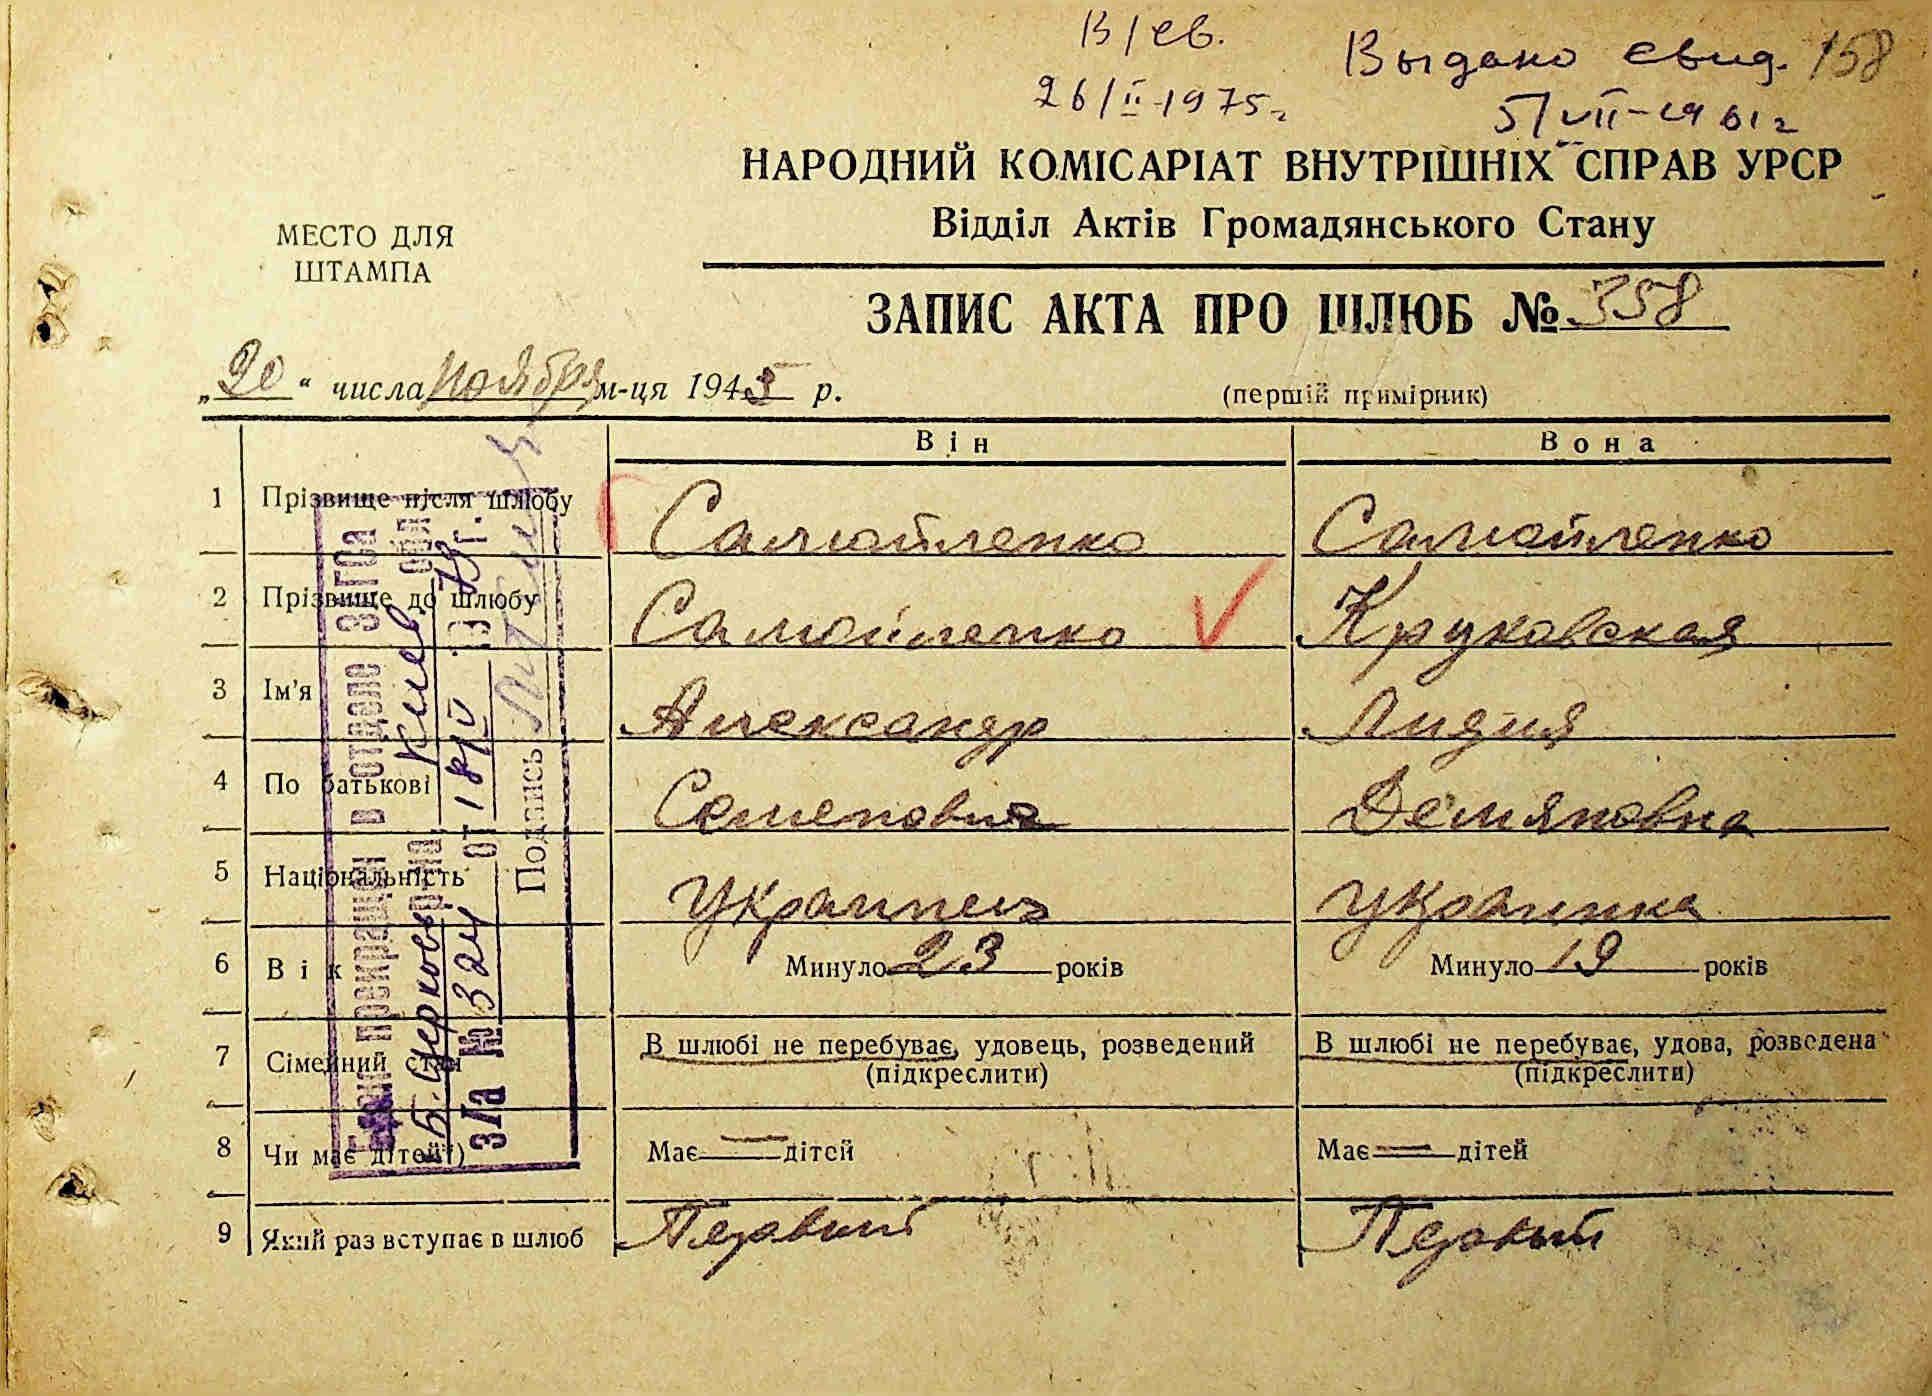 В/св.
26/II-1975г
Выдано свид. 158
5/VII-1961г
НАРОДНИЙ КОМІСАРІАТ ВНУТРІШНІХ СПРАВ УРСР
Відділ Актів Громадянського Стану
МЕСТО ДЛЯ
ШТАМПА
ЗАПИС АКТА ПРО ШЛЮБ № 358
„20“ числа ноября м-ця 1945 р.
(перший примірник)
Він Вона
1 Прізвище після шлюбу Самойленко Самойленко
2 Прізвище до шлюбу Самойленко Круковская
3 Ім'я Александр Лидия
4 По батькові Семенович Демяновна
5 Національність Украинец Украинка
6 Вік Минуло 23 років Минуло 19 років
7 Сімейний стан В шлюбі не перебуває, удовець, розведений В шлюбі не перебуває, удова, розведена
(підкреслити) (підкреслити)
8 Чи має дітей Має — дітей Має — дітей
9 Який раз вступає в шлюб Первый Первый
Брак прекращен в отделе ЗАГСа
Б. Церковь р-на, Киев. обл
З/а № 324 от 18/IV 19 г.
Подпись